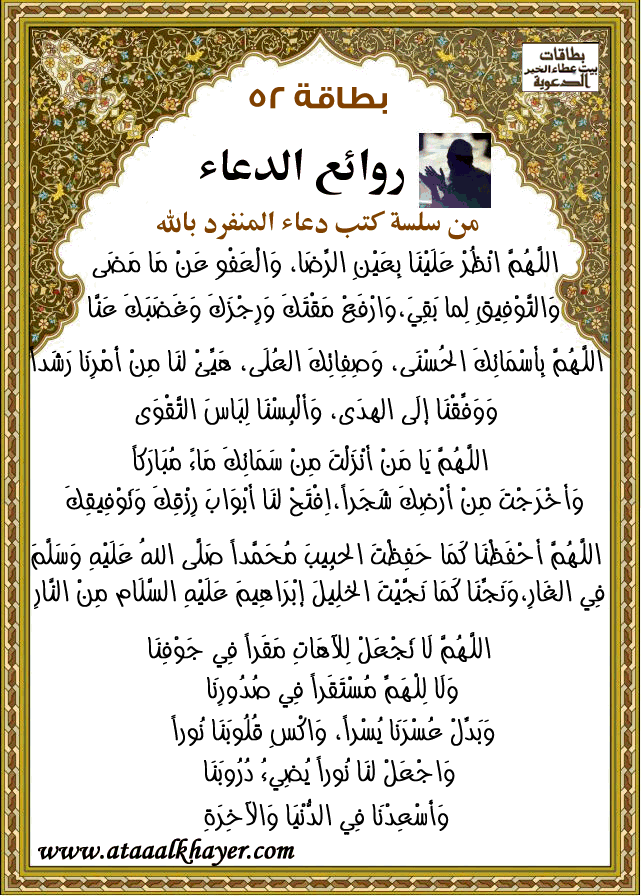 بطاقات
بيت عطاء الخير
الدعوية
بطاقة ٥٢
روائع الدعاء
من سلسة كتب دعاء المنفرد بالله
اللَّهُمَّ انْظُرْ عَلَيْنَا بِعَيْنِ الرِّضَا، وَالْعَفْوِ عَنْ مَا مَضَى
وَالتَّوْفِيقِ لِما بَقِيَ،وَارْفَعْ مَقْتَكَ وَرِجْزَكَ وَغَضَبَكَ عَنَّا
اللَّهُمَّ بِأَسْمَائِكَ الحُسْنَى، وَصِفِائِكَ العُلَى، هَيِّئْ لنَا مِنْ أَمْرِنَا رَشَداً
وَوَفِّقْنَا إلَى الهدَى، وَألْبِسْنَا لِبَاسَ التَّقْوَى
اللَّهُمَّ يَا مَنْ أَنْزَلْتَ مِنْ سَمَائِكَ مَاءً مُبَارَكاً
وَأَخْرَجْتَ مِنْ أَرْضِكَ شَجَراً،اِفْتَحْ لنَا أَبْوَابَ رِزْقِكَ وَتَوْفِيقِكَ
اللَّهُمَّ أحْفَظْنَا كَمَا حَفِظْتَ الحبِيبَ مُحَمَّداً صَلَّى اللهُ عَلَيْهِ وَسَلَّمَ
فِي الغَارِ،وَنَجِّنَا كَمَا نَجَّيْتَ الخلِيلَ إبْرَاهِيمَ عَلَيْهِ السَّلَام مِنْ النَّارِ
اللَّهُمَّ لَا تَجْعَلْ لِلآهَاتِ مَقَراً فِي جَوْفِنَا
وَلَا لِلْهَمِّ مُسْتَقَراً فِي صُدُورِنَا
وَبَدِّلْ عُسْرَنَا يُسْراً، وَاكْسِ قُلُوبَنَا نُوراً
وَاجْعَلْ لنَا نُوراً يُضِيءُ دُرُوبَنَا
وَأَسْعِدْنَا فِي الدُّنْيَا وَالآخِرَةِ
www.ataaalkhayer.com